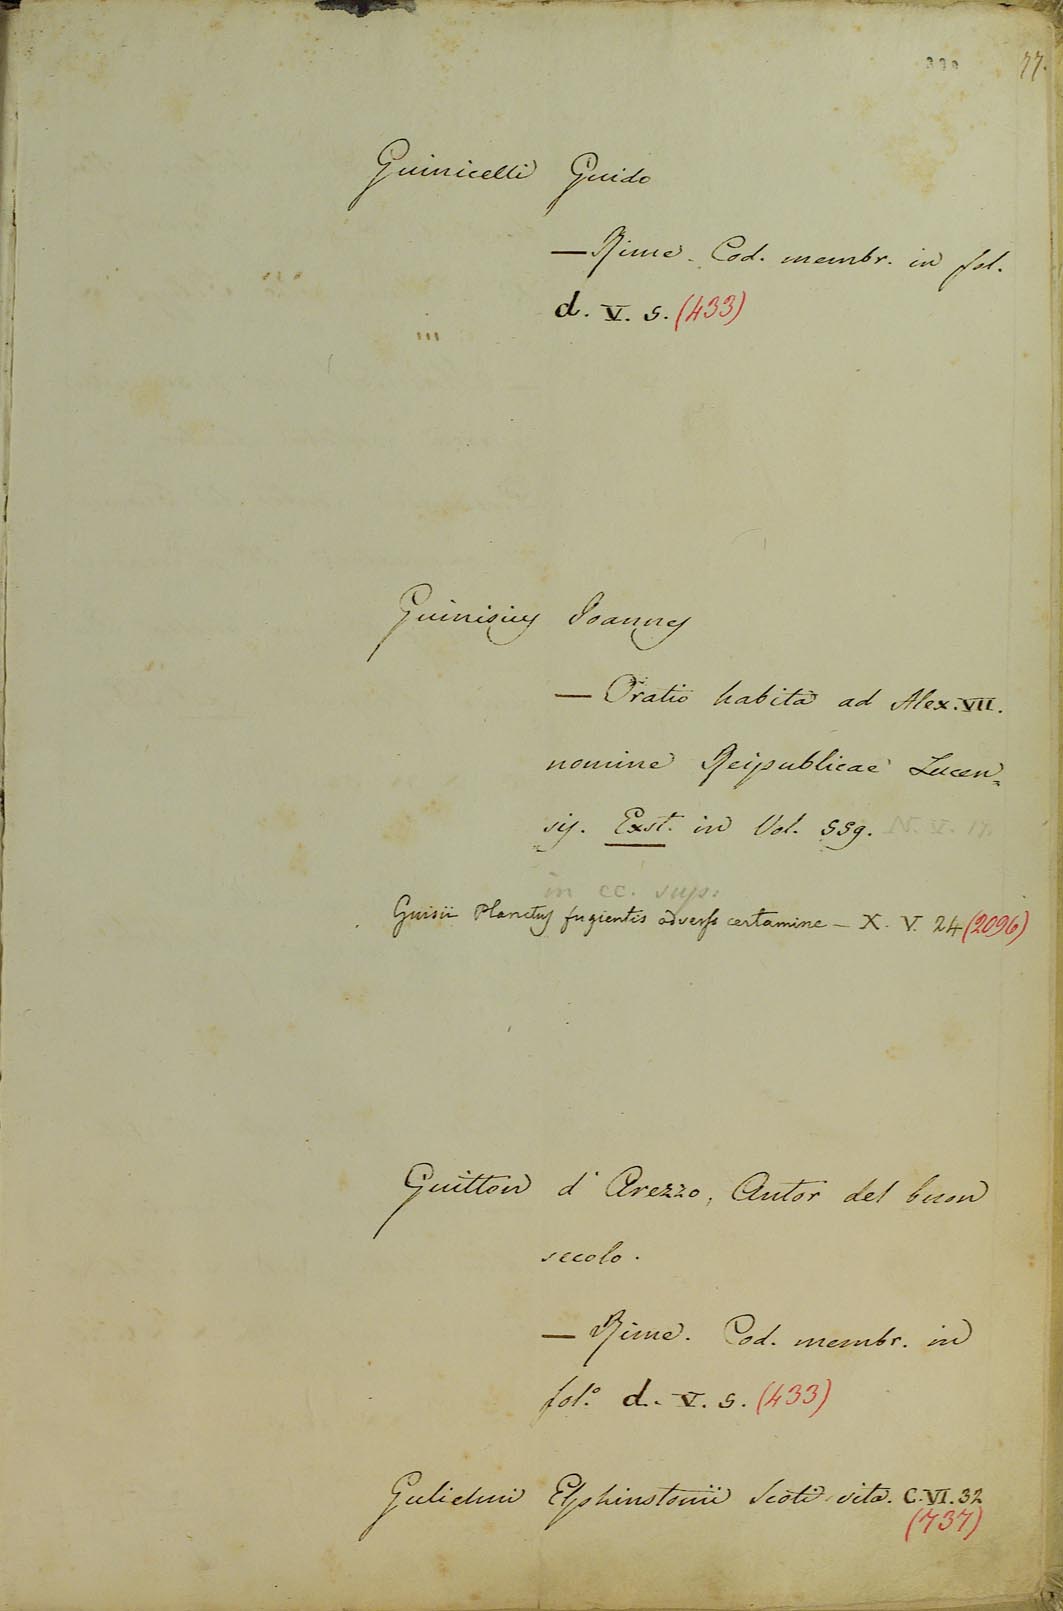 77.
Guinicelli Guido
— Rime. Cod. membr. in fol.
d. V. 5. (433)
Guinisius Joannes
— Oratio habita ad Alex. VII.
nomine Reipublicae Lucen=
sis. Exst. in Vol. 559. N. V. 17.
in cc. sup:
Guisii Planctus fugientis adverso certamine — X. V. 24 (2096)
Guitton d' Arezzo, Autor del buon
secolo.
— Rime. Cod. membr. in
fol.º d. V. 5. (433)
Gulielmi Elphinstonii Scoti vita. C. VI. 32
(737)